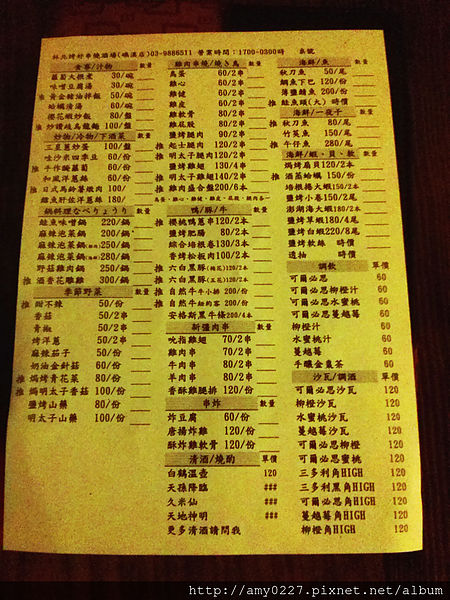 林北烤好串燒酒場(礁溪店)03-9886511 營業時間:1700-0300時 桌號
食事/汁物 數量
蘿蔔大根煮 30/碗
味噌豆腐湯 30/碗
推 黃金豬油拌飯 50/碗
蛤蠣清湯 60/碗
櫻花蝦炒飯 80/盤
推 炒鐵板烏龍麵 100/盤
炒物/冷物/下酒菜 數量
三星蔥炒蛋 100/份
味沙米四季豆 60/份
推 牛作醃蘿蔔 60/份
和風洋蔥絲 60/份
推 日式馬鈴薯燉肉 100/份
鱈魚肝佐洋蔥 180/份
鍋料理なべりょうり 數量
鮭魚味噌鍋 220/鍋
麻辣泡菜鍋 200/鍋
麻辣泡菜鍋 250/鍋
麻辣泡菜鍋 280/鍋
野菇雞肉鍋 250/鍋
推 酒香蒼蠅雞 300/鍋
季節野菜 數量
推 甜不辣 50/份
香菇 50/2串
青椒 50/2串
烤洋蔥 50/2串
麻辣茄子 50/份
奶油金針菇 60/份
推 焗烤青花菜 80/份
推 焗明太子香菇 100/份
鹽烤山藥 80/份
明太子山藥 100/份
雞肉串燒/燒き鳥 數量
鳥蛋 60/2串
雞心 60/2串
雞鍵 60/2串
雞皮 60/2串
雞軟骨 80/2串
雞屁股 80/2串
鹽烤腿肉 90/2串
推 起士腿肉 120/2串
推 明太子腿肉 120/2串
鹽烤雞翅 90/2串
推 明太子雞翅 140/2串
推 雞肉盛合盤 200/6本
鳥蛋、雞心、雞鍵、雞皮、屁股、腿肉各一
鴨/豚/牛 數量
推 櫻桃鴨蔥串 120/2本
鹽烤肥腸 80/2本
綜合培根卷 130/3本
香烤松板肉 100/2本
推 六白黑豚(梅花)120/2本
推 六白黑豚(五花)120/2本
推 自然牛牛小排 200/份
推 自然牛紐約客 200/份
安格斯黑牛條 200/4本
新彊肉串 數量
吮指雞翅 70/2串
雞肉串 70/2串
牛肉串 80/2串
羊肉串 80/2串
香酥雞腿排 120/2串
串炸 數量
炸豆腐 60/份
唐揚炸雞 120/份
酥炸雞軟骨 120/份
清酒/燒酌 單價
白鶴溫壺 120
天孫降臨 ###
久米仙 ###
天地神明 ###
更多清酒請問我
海鮮/魚 數量
秋刀魚 50/尾
鯛魚下巴 120/份
薄鹽鯖魚 200/份
推 鮭魚頭(大) 時價
海鮮/一夜干 數量
推 秋刀魚 80/尾
竹筴魚 150/尾
推 午仔魚 280/尾
海鮮/蝦、貝、軟 數量
焗烤扇貝 120/2本
推 酒蒸蛤蠣 150/份
培根捲大蝦 150/2本
鹽烤小卷 150/2尾
澎湖海大蝦 180/2本
鹽烤草蝦 180/4尾
鹽烤白蝦 220/8尾
鹽烤軟絲 時價
透抽 時價
調飲 單價
可爾必思 60
可爾必思柳橙汁 60
可爾必思水蜜桃 60
可爾必思蔓越莓 60
柳橙汁 60
水蜜桃汁 60
蔓越莓 60
冬曬金氣茶 60
沙瓦/調酒 單價
可爾必思沙瓦 120
柳橙沙瓦 120
水蜜桃沙瓦 120
蔓越莓沙瓦 120
可爾必思柳橙 120
可爾必思蜜桃 120
三多利角HIGH 120
三多利黑角HIGH 120
可爾必思角HIGH 120
蔓越莓角HIGH 120
柳橙角HIGH 120
http://amy0227.pixnet.net/album